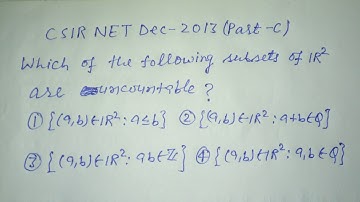 CSIR NET Dec-2013 (Part-C)
Which of the following subsets of ℝ²
are uncountable?
① {(a,b)∈ℝ²: a≤b} ② {(a,b)∈ℝ²: a+b∈Q}
③ {(a,b)∈ℝ²: ab∈ℤ} ④ {(a,b)∈ℝ²: a,b∈Q}